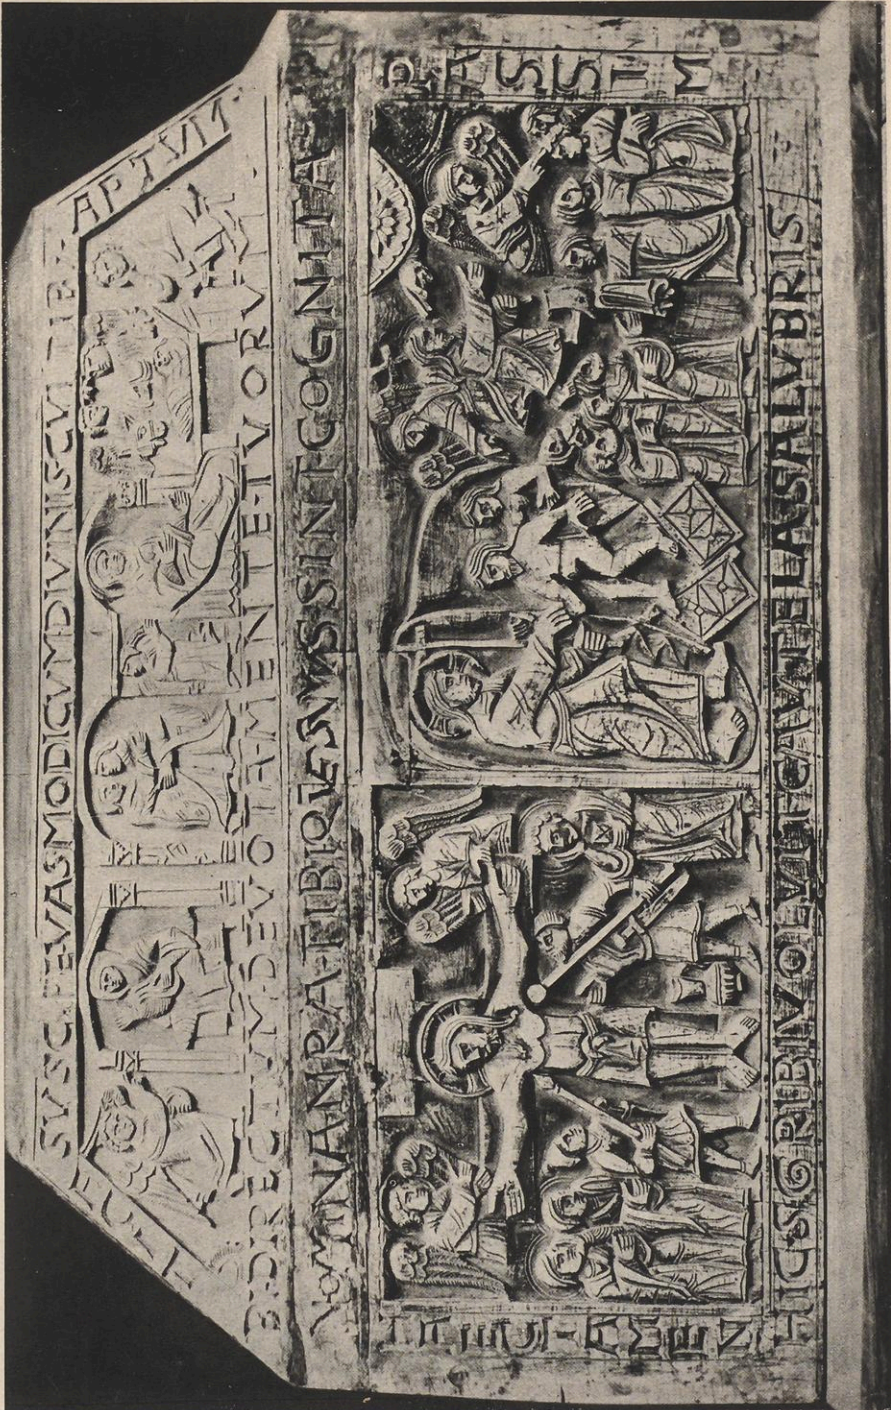 SVSCIPE VAS MODICVM DIVINIS CVLTIB APTVM
DIRECTVM DEVOTA MENTE TVORVM
NOMINA NRA TIBI QVESVMVS SINT COGNITA PASSIM
SCRIBI VOLVIT CAVTELA SALVBRIS